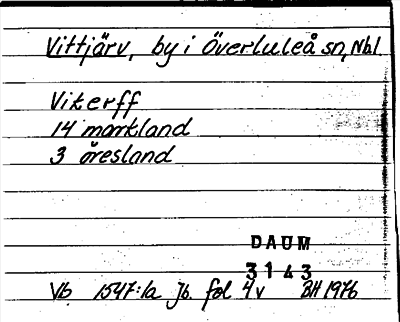 Vittjärv, by i Överluleå sn, Nbl.
Vikerff
14 markland
3 öresland
DAUM
3143
Vb. 1547:1a Jb. fol 4v BH 1976